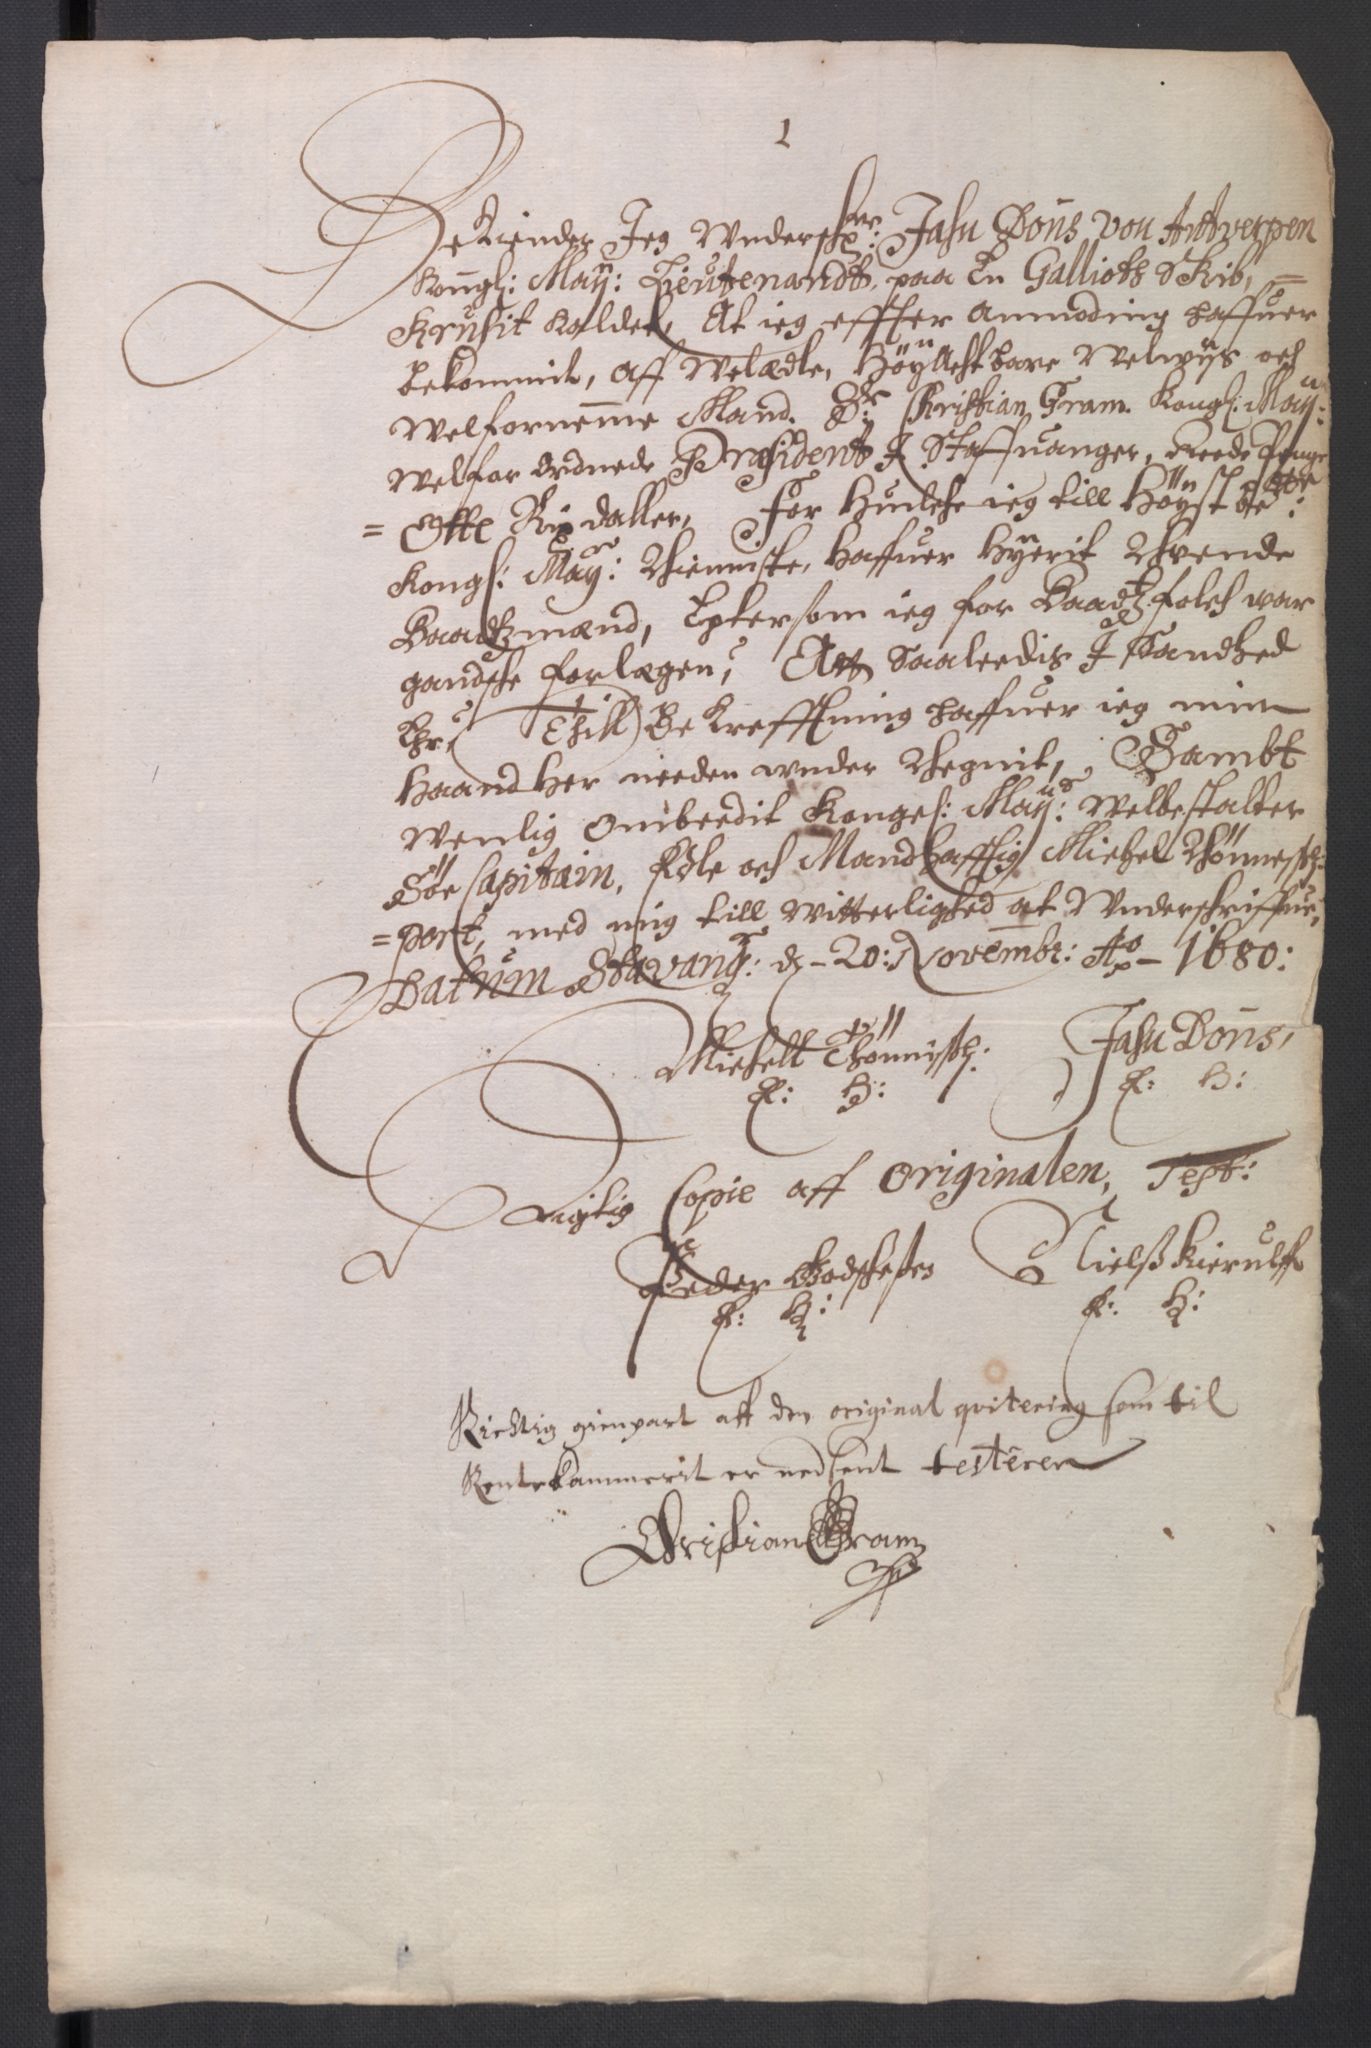 1
Bekiender Jeg Underschr: Jahn Dons von Antverpen
Kongl: May: Lieutenandt, paa En Galliots Skib, =
Krusit kaldet, At ieg effter anmoding haffuer
bekommit, aff Welædle, Höyachtbare Welwijs och
Welfornemme Mand. Hr Christian Gram. Kongl: May:
Welforordnede Præsident J Staffuanger, Reede Penge
= Otte Rix daller, For Huilche ieg till Höyst be:
Kongl: May: Thienniste, haffuer Hyerit Thvende
Baadtzmænd, Epthersom ieg for Baadtzfolch war
gandsche forlægen, Att Saaleedis J Sandhed
Ehr, Thill Bekrefftning haffuer ieg min
Haand Her needen under Thegnit, Sambt
Wenlig ombeedit Kongl: May: Welbestalter
Söe Capitain, Edle och Mandhafftig Michel Thönnesch:
= port, med mig till Witterlighed at Underschriffue,
Datum Stavang: d - 20: Novembr: Ao - 1680:
Michell Thönnisch: Jahn Dons,
E: H: E: H:
Rigtig Copie aff Originalen, Test:
Peder Godschesen Nielß Kierulff
E: H: E: H:
Richtig gienpart aff den original qvitering som til
Rentekammerit er nedsent testerer
Christian Gram